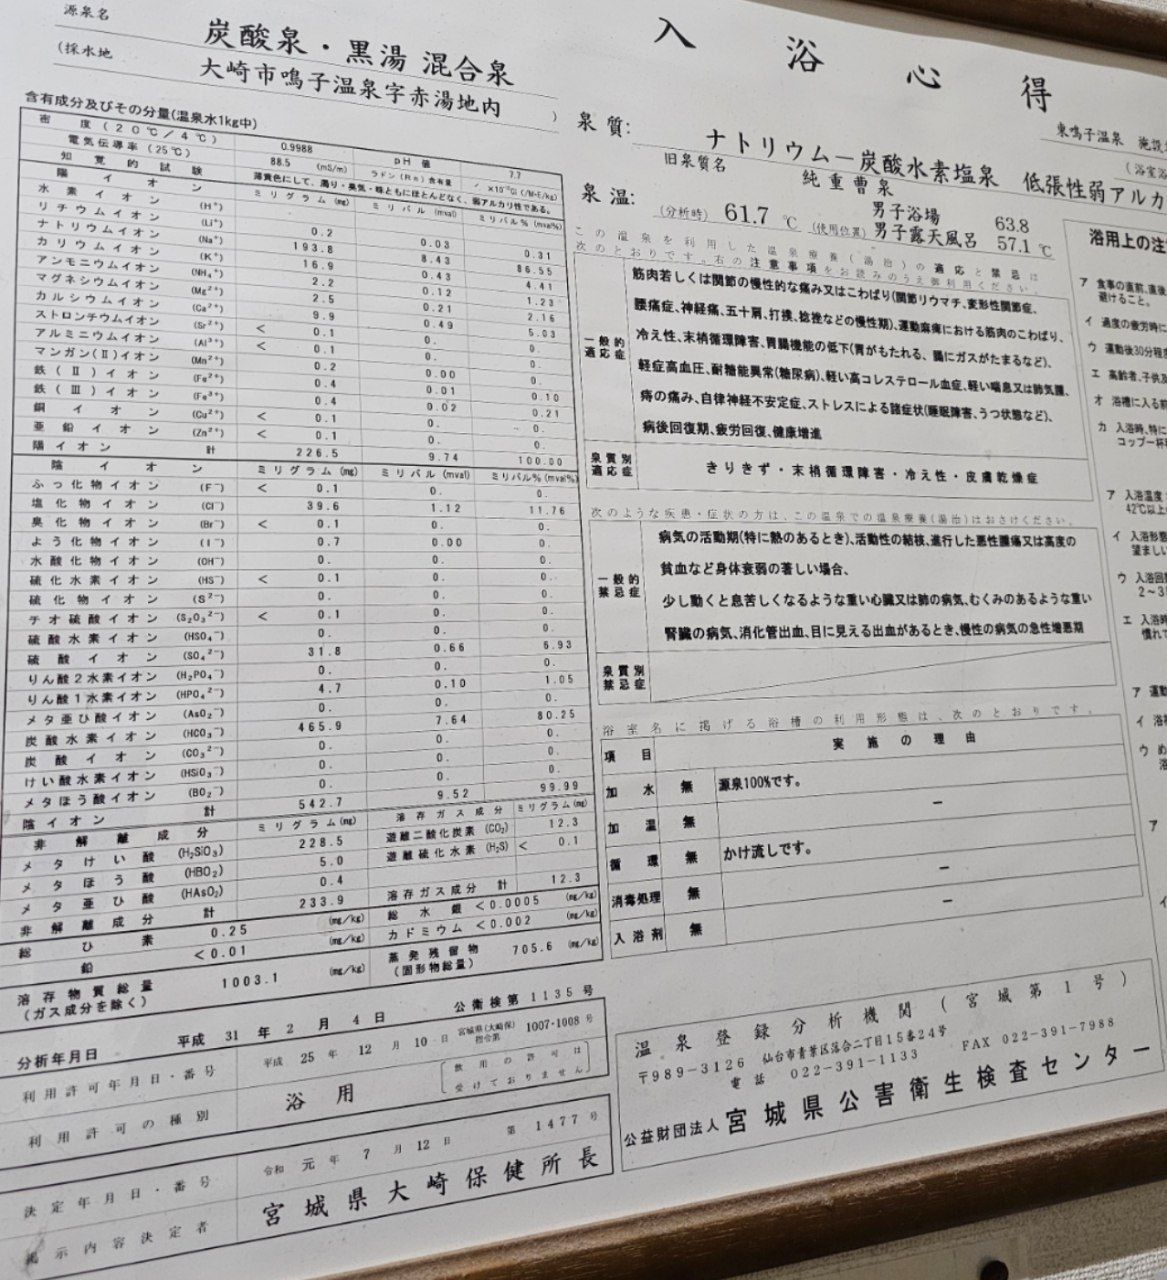 入浴心得
源泉名
炭酸泉・黒湯 混合泉
(採水地
大崎市鳴子温泉字赤湯地内
)
含有成分及びその分量(温泉水1kg中)
密度(20℃/4℃) 0.9988 pH値 7.7
電気伝導率(25℃) 88.5 (mS/m) ラドン(Rn)含有量
知覚的試験 薄黄色にして、濁り・臭気・味ともにほとんどなく、弱アルカリ性である。
陽イオン ミリグラム(mg) ミリバル(mval) ミリバル%(mval%)
水素イオン (H⁺)
リチウムイオン (Li⁺) 0.2 0.03 0.31
ナトリウムイオン (Na⁺) 193.8 8.43 86.55
カリウムイオン (K⁺) 16.9 0.43 4.41
アンモニウムイオン (NH₄⁺) 2.2 0.12 1.23
マグネシウムイオン (Mg²⁺) 2.5 0.21 2.16
カルシウムイオン (Ca²⁺) 9.9 0.49 5.03
ストロンチウムイオン (Sr²⁺) < 0.1 0. 0.
アルミニウムイオン (Al³⁺) < 0.1 0. 0.
マンガン(Ⅱ)イオン (Mn²⁺) 0.2 0.00 0.
鉄(Ⅱ)イオン (Fe²⁺) 0.4 0.01 0.10
鉄(Ⅲ)イオン (Fe³⁺) 0.4 0.02 0.21
銅イオン (Cu²⁺) < 0.1 0. 0.
亜鉛イオン (Zn²⁺) < 0.1 0. 0.
陽イオン計 226.5 9.74 100.00
陰イオン ミリグラム(mg) ミリバル(mval) ミリバル%(mval%)
ふっ化物イオン (F⁻) < 0.1 0. 0.
塩化物イオン (Cl⁻) 39.6 1.12 11.76
臭化物イオン (Br⁻) < 0.1 0. 0.
よう化物イオン (I⁻) 0.7 0.00 0.
水酸化物イオン (OH⁻) 0. 0. 0.
硫化水素イオン (HS⁻) < 0.1 0. 0.
硫化物イオン (S²⁻) 0. 0. 0.
チオ硫酸イオン (S₂O₃²⁻) < 0.1 0. 0.
硫酸水素イオン (HSO₄⁻) 0. 0. 0.
硫酸イオン (SO₄²⁻) 31.8 0.66 6.93
りん酸2水素イオン (H₂PO₄⁻) 0. 0. 0.
りん酸1水素イオン (HPO₄²⁻) 4.7 0.10 1.05
メタ亜ひ酸イオン (AsO₂⁻) 0. 0. 0.
炭酸水素イオン (HCO₃⁻) 465.9 7.64 80.25
炭酸イオン (CO₃²⁻) 0. 0. 0.
けい酸水素イオン (HSiO₃⁻) 0. 0. 0.
メタほう酸イオン (BO₂⁻) 0. 0. 0.
陰イオン計 542.7 9.52 99.99
非解離成分 ミリグラム(mg) 溶存ガス成分 ミリグラム(mg)
メタけい酸 (H₂SiO₃) 228.5 遊離二酸化炭素 (CO₂) 12.3
メタほう酸 (HBO₂) 5.0 遊離硫化水素 (H₂S) < 0.1
メタ亜ひ酸 (HAsO₂) 0.4
非解離成分計 233.9 溶存ガス成分計 12.3
総ひ素 0.25 (mg/kg) 総水銀 <0.0005 (mg/kg)
鉛 <0.01 (mg/kg) カドミウム <0.002 (mg/kg)
溶存物質総量(ガス成分を除く) 1003.1 (mg/kg) 蒸発残留物(固形物総量) 705.6 (mg/kg)
分析年月日 平成 31 年 2 月 4 日 公衛検第 1135 号
利用許可年月日・番号 平成 25 年 12 月 10 日 宮城県(大崎保)指令第 1007・1008 号
利用許可の種別 浴用 (飲用の許可は受けておりません)
決定年月日・番号 令和 元 年 7 月 12 日 第 1477 号
掲示内容決定者 宮城県大崎保健所長
東鳴子温泉 施設
(浴室
泉質: ナトリウム－炭酸水素塩泉 低張性弱アルカ
旧泉質名 純重曹泉
泉温: (分析時) 61.7 ℃ (使用位置) 男子浴場 63.8
男子露天風呂 57.1 ℃
この温泉を利用した温泉療養(湯治)の適応と禁忌は
次のとおりです。右の注意事項をお読みのうえ御利用ください。
一般的適応症
筋肉若しくは関節の慢性的な痛み又はこわばり(関節リウマチ、変形性関節症、
腰痛症、神経痛、五十肩、打撲、捻挫などの慢性期)、運動麻痺における筋肉のこわばり、
冷え性、末梢循環障害、胃腸機能の低下(胃がもたれる、腸にガスがたまるなど)、
軽症高血圧、耐糖能異常(糖尿病)、軽い高コレステロール血症、軽い喘息又は肺気腫、
痔の痛み、自律神経不安定症、ストレスによる諸症状(睡眠障害、うつ状態など)、
病後回復期、疲労回復、健康増進
泉質別適応症 きりきず・末梢循環障害・冷え性・皮膚乾燥症
次のような疾患・症状の方は、この温泉での温泉療養(湯治)はおさけください。
一般的禁忌症
病気の活動期(特に熱のあるとき)、活動性の結核、進行した悪性腫瘍又は高度の
貧血など身体衰弱の著しい場合、
少し動くと息苦しくなるような重い心臓又は肺の病気、むくみのあるような重い
腎臓の病気、消化管出血、目に見える出血があるとき、慢性の病気の急性増悪期
泉質別禁忌症
浴室名に掲げる浴槽の利用形態は、次のとおりです。
項目 実施の理由
加水 無 源泉100%です。
加温 無 －
循環 無 かけ流しです。
消毒処理 無 －
入浴剤 無 －
温泉登録分析機関(宮城第1号)
〒989-3126 仙台市青葉区落合二丁目15番24号
電話 022-391-1133 FAX 022-391-7988
公益財団法人 宮城県公害衛生検査センター
浴用上の注
ア 食事の直前、直後
避けること。
イ 過度の疲労時に
ウ 運動後30分程度
エ 高齢者、子供及
オ 浴槽に入る前
カ 入浴時、特に
コップ一杯
ア 入浴温度
42℃以上
イ 入浴形態
望ましい
ウ 入浴回
2～3
エ 入浴時
慣れて
ア 運動
イ 浴
ウ め
浴
ア
イ